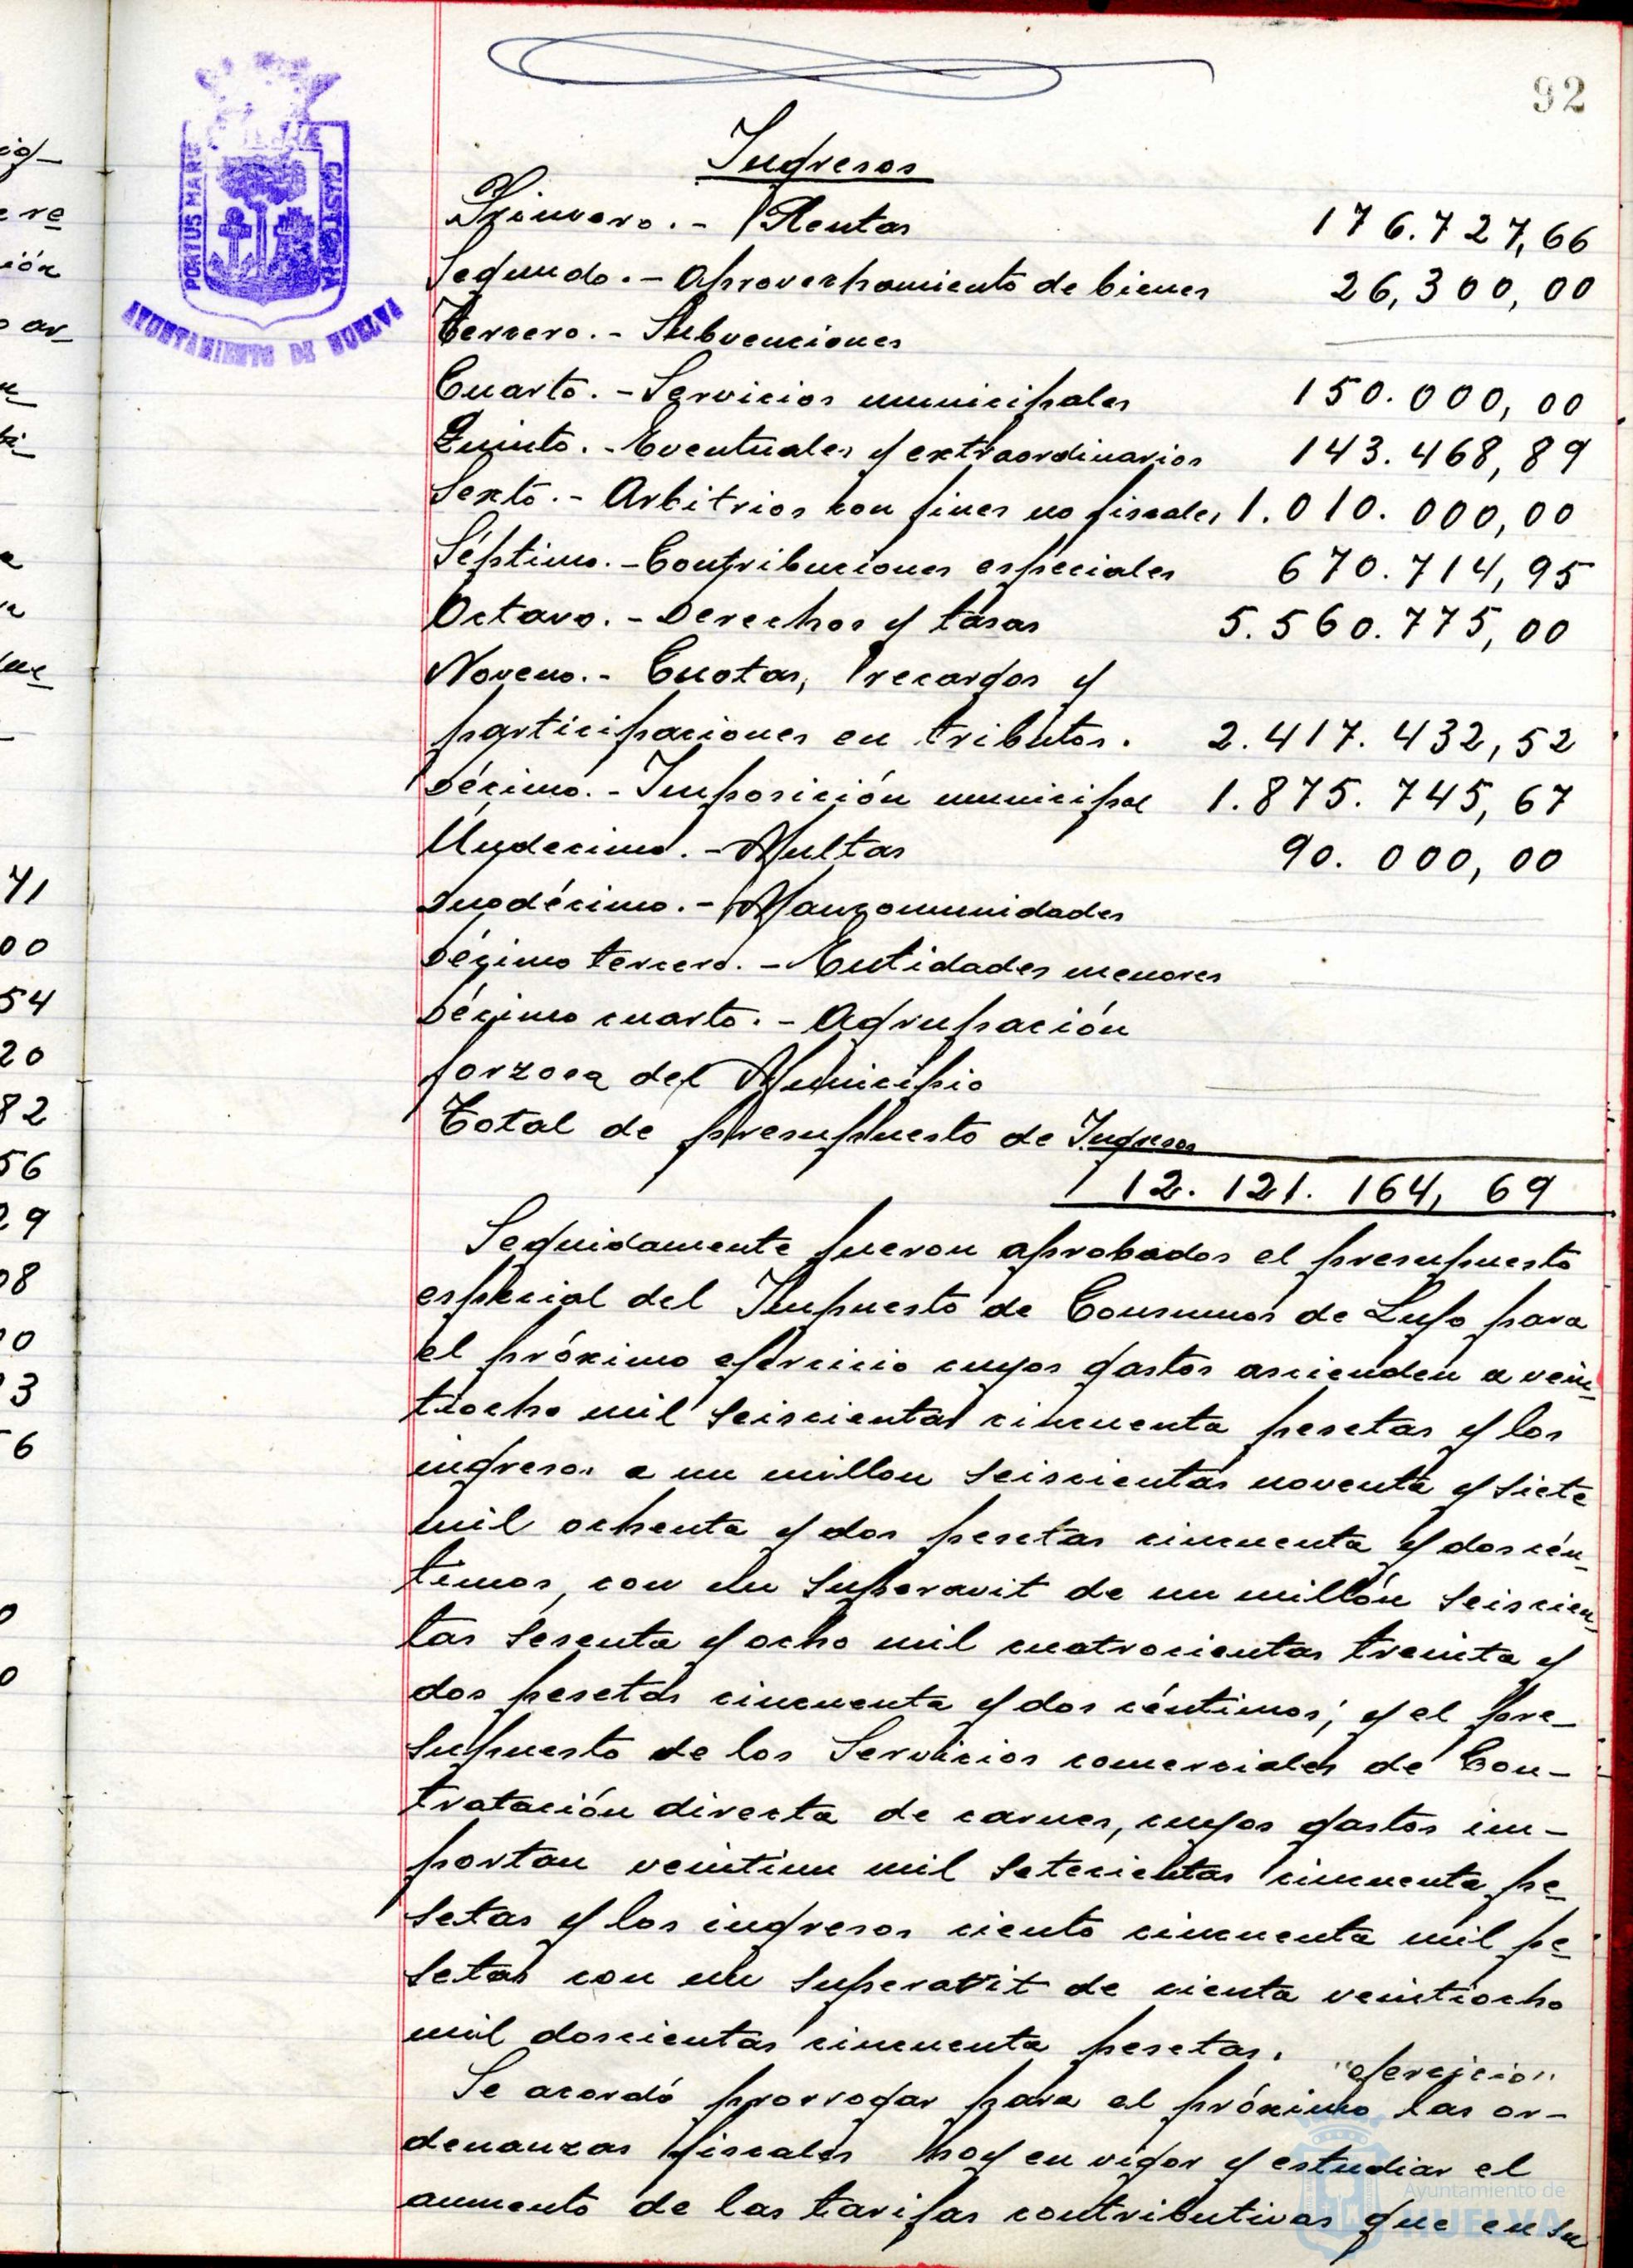 92
PORTUS MARIS
CUSTODIA
AYUNTAMIENTO DE HUELVA
Ingresos
Primero.- Rentas 176.727,66
Segundo.- Aprovechamiento de bienes 26,300,00
Tercero.- Subvenciones
Cuarto.- Servicios municipales 150.000,00
Quinto.- Eventuales y extraordinarios 143.468,89
Sexto.- Arbitrios con fines no fiscales 1.010.000,00
Séptimo.- Contribuciones especiales 670.714,95
Octavo.- Derechos y tasas 5.560.775,00
Noveno.- Cuotas, recargos y
participaciones en tributos. 2.417.432,52
Décimo.- Imposición municipal 1.875.745,67
Undecimo.- Multas 90.000,00
Duodécimo.- Mancomunidades
Décimo tercero.- Entidades menores
Décimo cuarto.- Agrupación
forzosa del Municipio
Total de presupuesto de Ingresos
12.121.164,69
Seguidamente fueron aprobados el presupuesto
especial del Impuesto de Consumos de Lujo para
el próximo ejercicio cuyos gastos ascienden a vein-
tiocho mil seiscientas cincuenta pesetas y los
ingresos a un millon seiscientas noventa y siete
mil ochenta y dos pesetas cincuenta y dos cén-
timos, con un superavit de un millón seiscien-
tas sesenta y ocho mil cuatrocientas treinta y
dos pesetas cincuenta y dos céntimos; y el pre-
supuesto de los Servicios comerciales de Con-
tratación directa de carnes, cuyos gastos im-
portan veintiun mil setecientas cincuenta pe-
setas y los ingresos ciento cincuenta mil pe-
setas con un superavit de cienta veintiocho
mil doscientas cincuenta pesetas.
"ejercicio"
Se acordó prorrogar para el próximo las or-
denanzas fiscales hoy en vigor y estudiar el
aumento de las tarifas contributivas que en su
Ayuntamiento de
HUELVA
ión
71
00
54
20
82
56
29
08
0
3
6